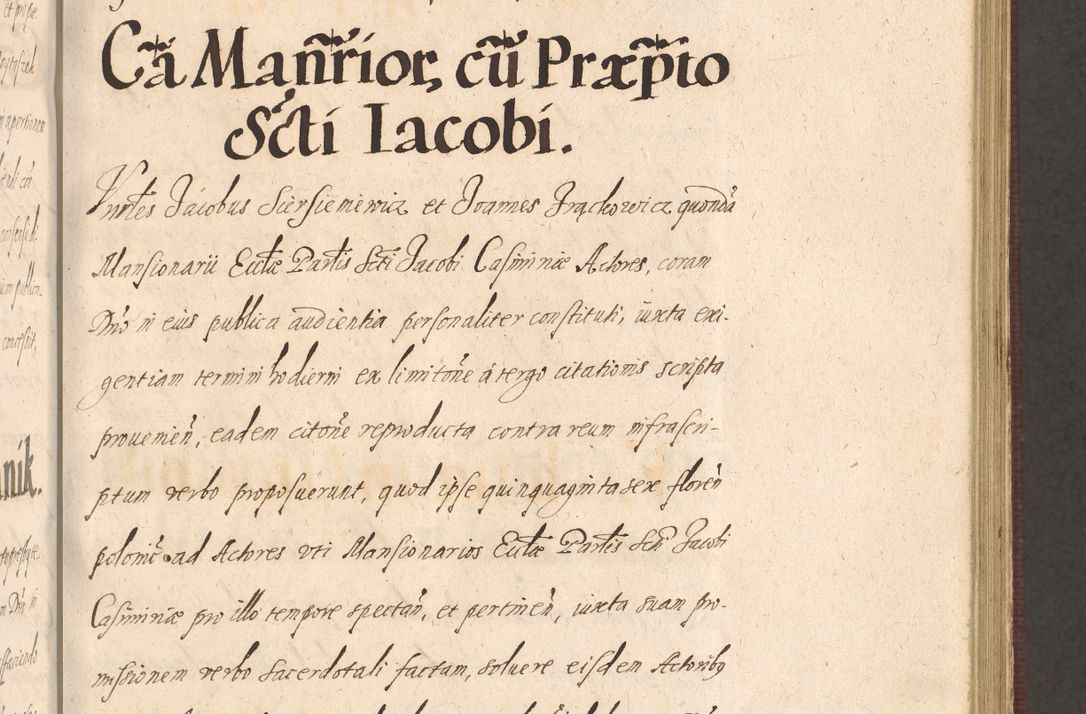 Cã Manr̃ior, cũ Præp̃to
Scti Iacobi.
Vnrłes Jacobus Siersiemiewicz et Joannes Frąckowicz quondã
Mansionarii Ecłæ Parłis Scti Jacobi Casimiriæ Actores, coram
Dño in eius publica audientia personaliter constituti, iuxta exi-
gentiam termini hodierni ex limitoñe á tergo citationis scripta
provenień, eadem citoñe reproducta contra reum infrascri-
ptum verbo proposuerunt, quod ipse quinquaginta sex floreń
polonic ad Actores vti Mansionarios Ecłæ Parłis Scti Jacobi
Casimiriæ pro illo tempore spectań, et pertineń, iuxta suam pro-
missionem verbo sacerdotali factam, soluere eisdem Actoribꝫ